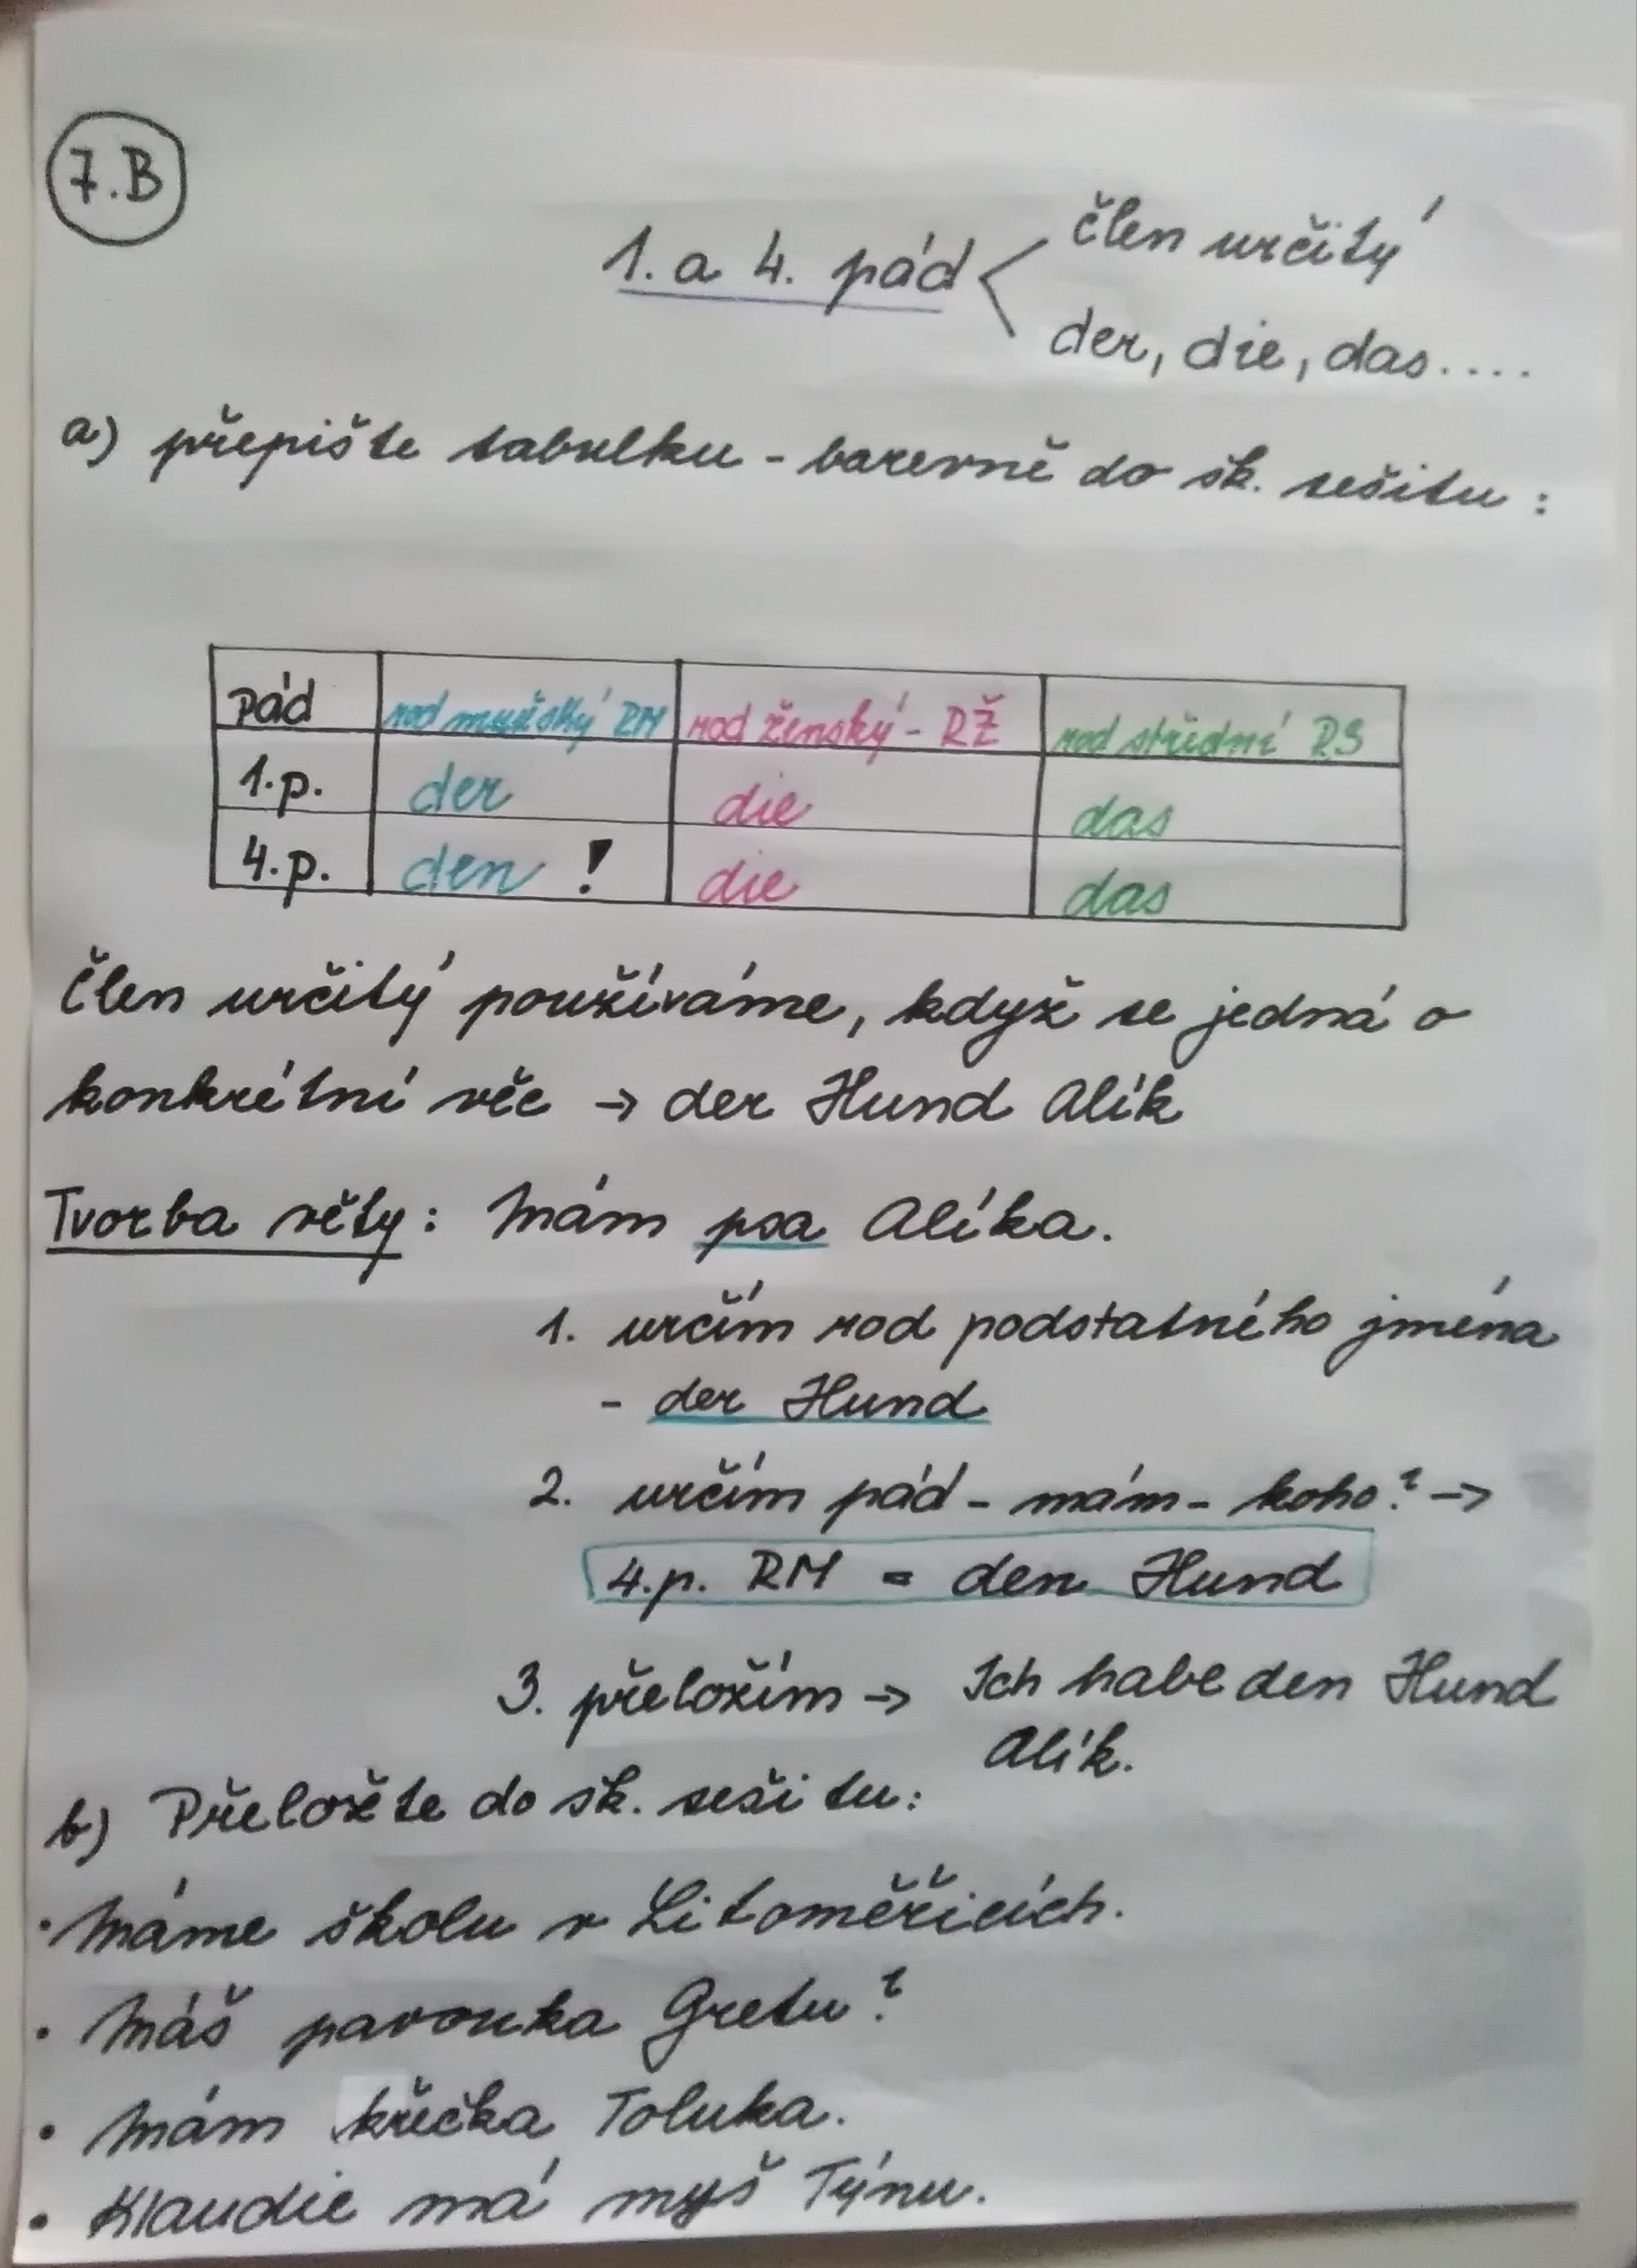 7.B
1. a 4. pád < člen určitý
der, die, das....
a) přepište tabulku - barevně do šk. sešitu:
Pád rod mužský RM rod ženský - RŽ rod střední RS
1.p. der die das
4.p. den ! die das
Člen určitý používáme, když se jedná o
konkrétní věc → der Hund Alík
Tvorba věty: Mám psa Alíka.
1. určím rod podstatného jména
- der Hund
2. určím pád - mám - koho? →
4.p. RM = den Hund
3. přeložím → Ich habe den Hund
Alík.
b) Přeložte do šk. sešitu:
• Máme školu v Litoměřicích.
• Máš pavouka Gretu?
• Mám křečka Toluka.
• Klaudie má myš Týnu.